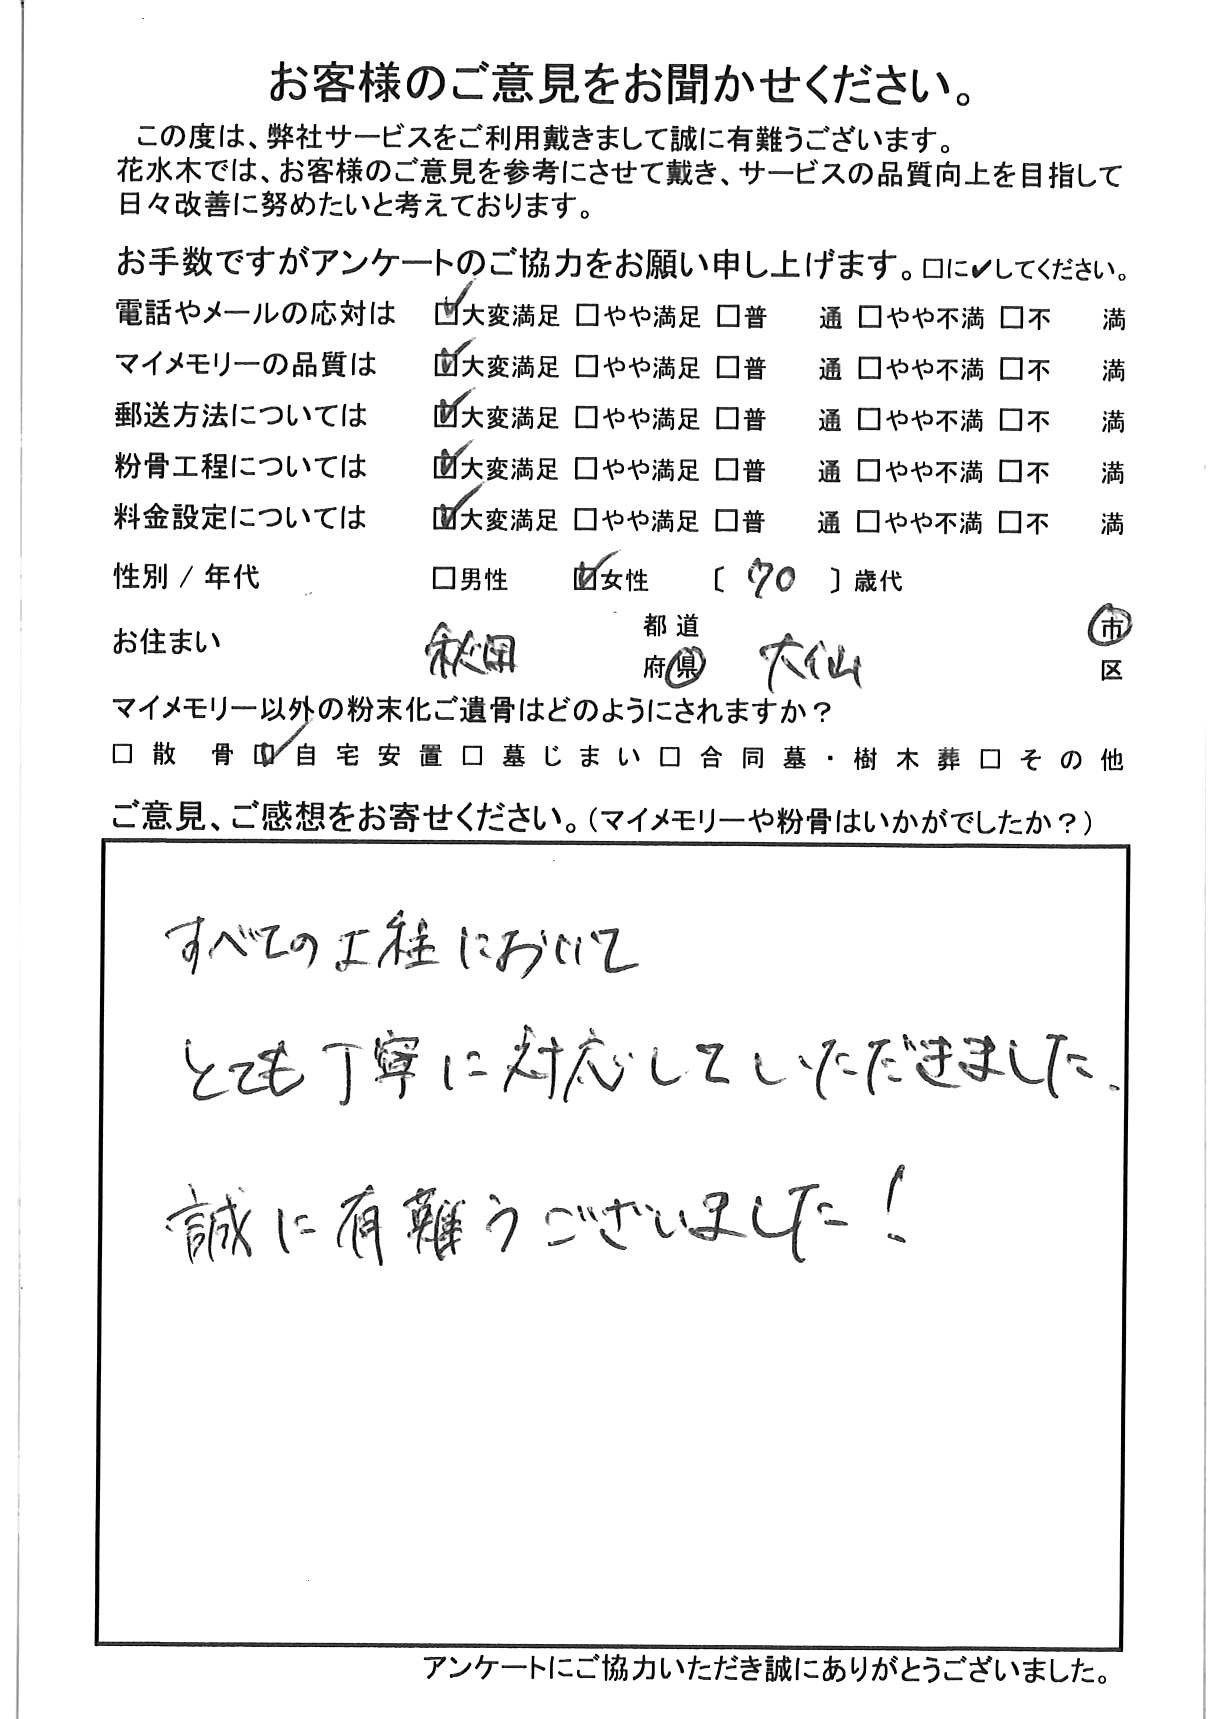 お客様のご意見をお聞かせください。
この度は、弊社サービスをご利用戴きまして誠に有難うございます。
花水木では、お客様のご意見を参考にさせて戴き、サービスの品質向上を目指して
日々改善に努めたいと考えております。
お手数ですがアンケートのご協力をお願い申し上げます。□に✔してください。
電話やメールの応対は ☑大変満足 □やや満足 □普 通 □やや不満 □不 満
マイメモリーの品質は ☑大変満足 □やや満足 □普 通 □やや不満 □不 満
郵送方法については ☑大変満足 □やや満足 □普 通 □やや不満 □不 満
粉骨工程については ☑大変満足 □やや満足 □普 通 □やや不満 □不 満
料金設定については ☑大変満足 □やや満足 □普 通 □やや不満 □不 満
性別 / 年代 □男性 ☑女性 〔 70 〕歳代
お住まい 秋田 都道府県 大仙 市区
マイメモリー以外の粉末化ご遺骨はどのようにされますか？
□散 骨 ☑自宅安置 □墓じまい □合同墓・樹木葬 □その他
ご意見、ご感想をお寄せください。（マイメモリーや粉骨はいかがでしたか？）
すべての工程において
とても丁寧に対応していただきました。
誠に有難うございました！
アンケートにご協力いただき誠にありがとうございました。